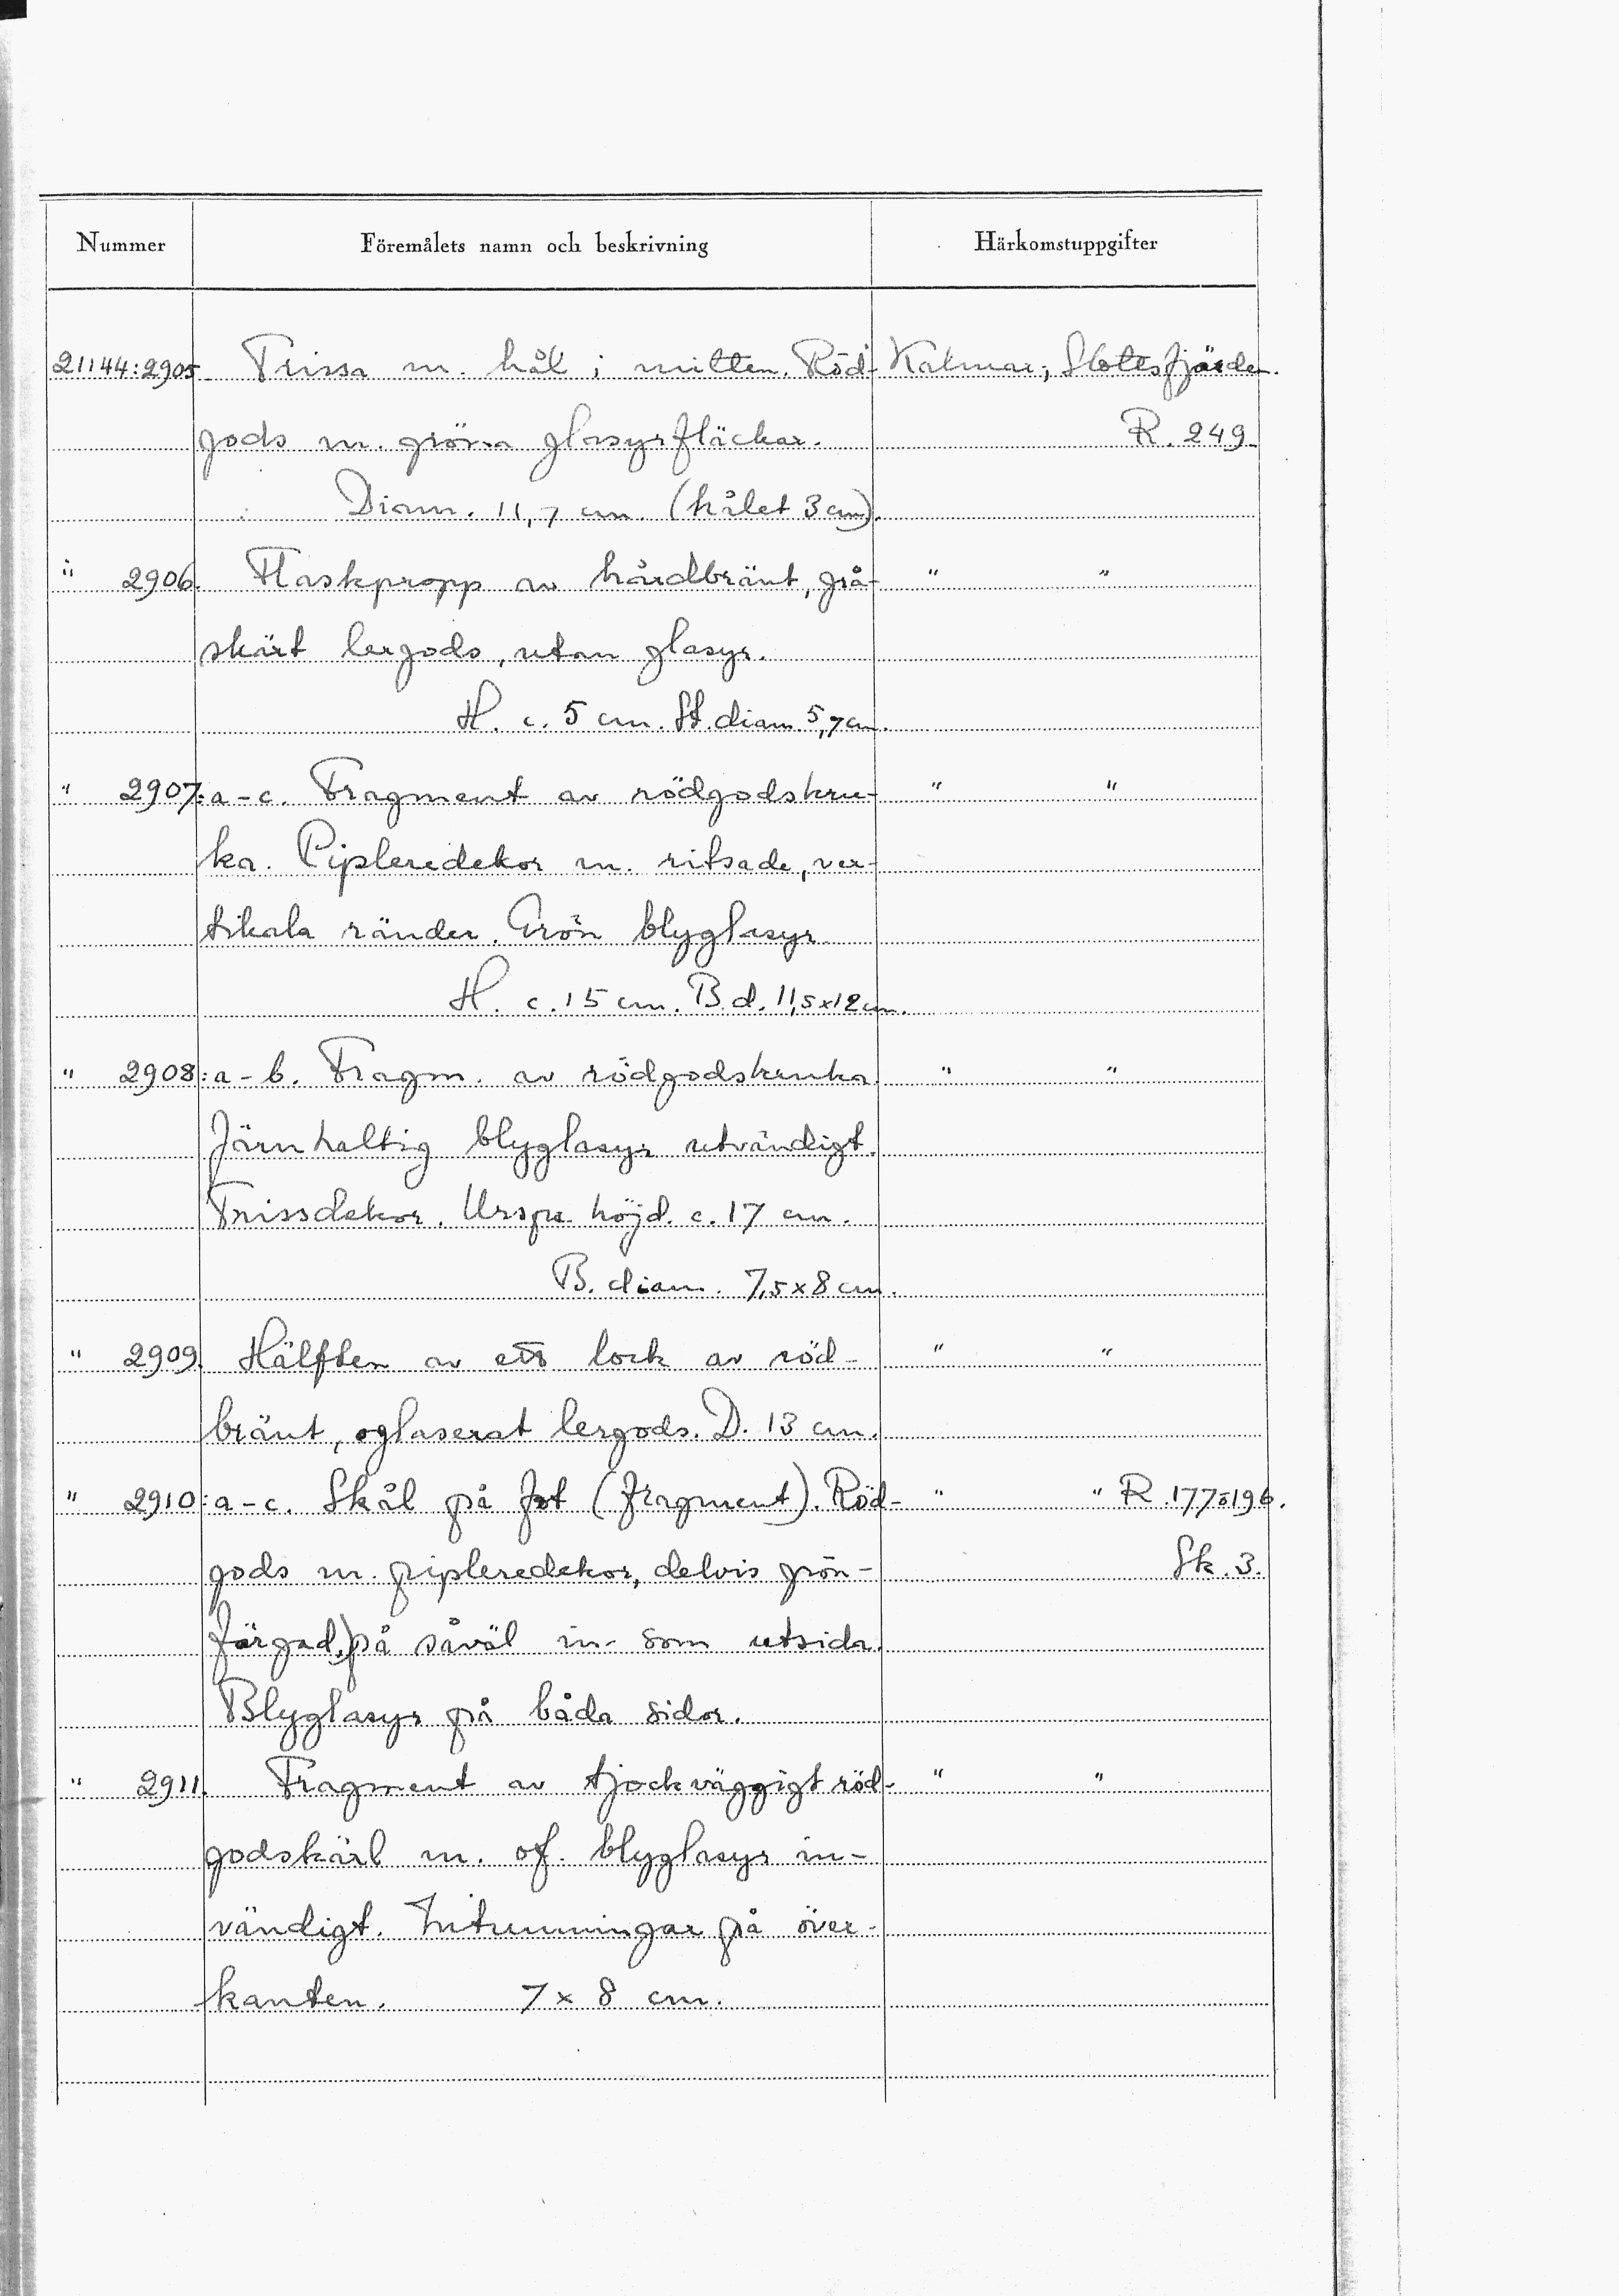 Nummer Föremålets namn och beskrivning Härkomstuppgifter
21144:2905 Trissa m. hål i mitten. Röd- Kalmar, Slottsfjärden.
gods m. gröna glasyrfläckar. R. 249
Diam. 11,7 cm. (hålet 3 cm).
" 2906. Flaskpropp av hårdbränt, grå- " "
skärt lergods, utan glasyr.
H. c. 5 cm. St. diam. 5,7 cm.
" 2907:a-c. Fragment av rödgodskru- " "
ka. Pipleredekor m. ritsade, ver-
tikala ränder. Grön blyglasyr
H. c. 15 cm. B.d. 11,5x12 cm.
" 2908:a-b. Fragm. av rödgodskruka. " "
Järnhaltig blyglasyr utvändigt.
Trissdekor. Urspr. höjd. c. 17 cm.
B. diam. 7,5x8 cm.
" 2909. Hälften av ett lock av röd- " "
bränt, oglaserat lergods. D. 13 cm.
" 2910:a-c. Skål på fot (fragment). Röd- " " R. 177 o 196.
gods m. pipleredekor, delvis grön- Sk. 3.
färgad, på såväl in- som utsida.
Blyglasyr på båda sidor.
" 2911. Fragment av tjockväggigt röd- " "
godskärl m. of. blyglasyr in-
vändigt. Intumningar på över-
kanten. 7 x 8 cm.